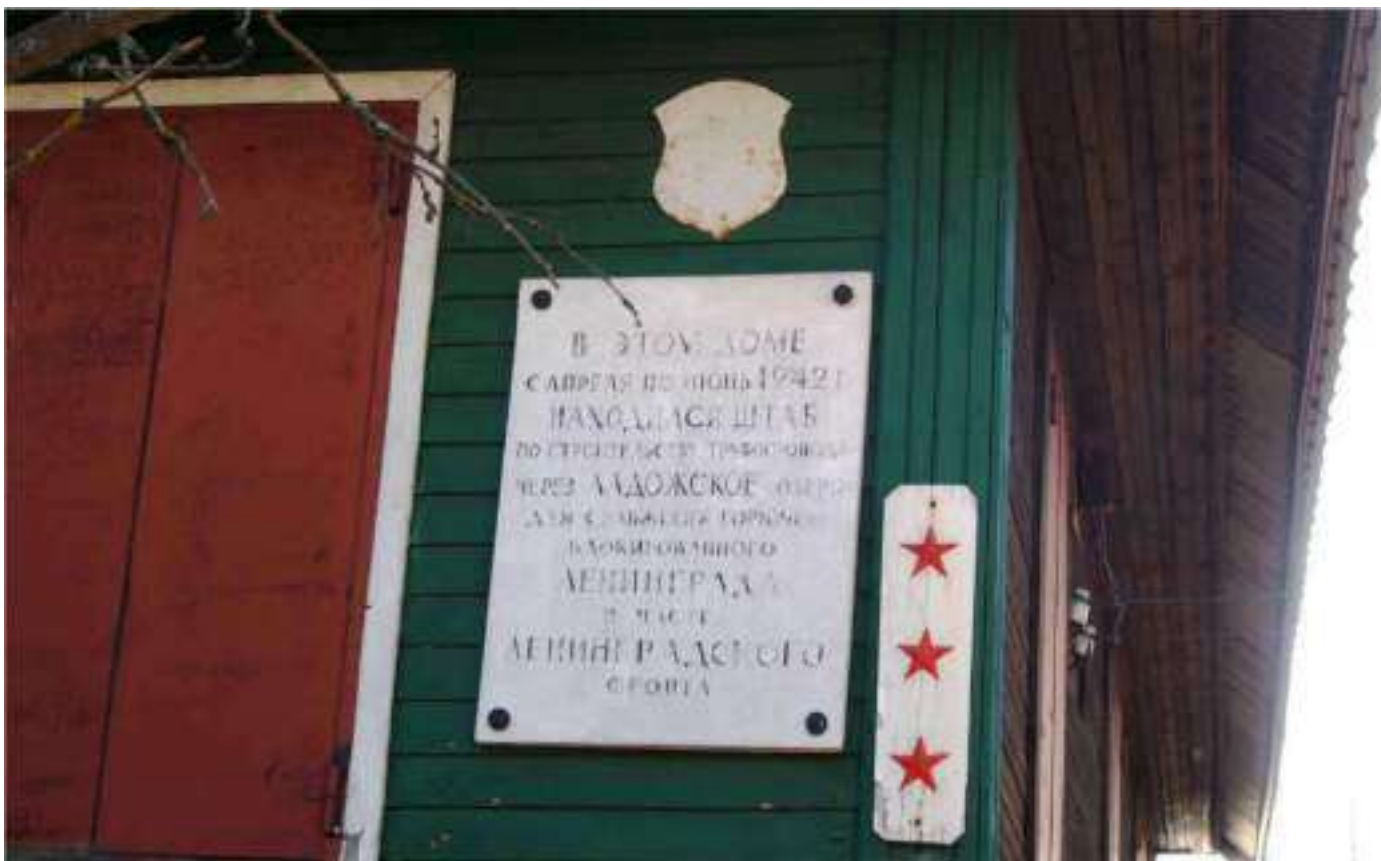 В ЭТОМ ДОМЕ
С АПРЕЛЯ ПО ИЮНЬ 1942 Г
НАХОДИЛСЯ ШТАБ
ПО СТРОИТЕЛЬСТВУ ТРУБОПРОВОДА
ЧЕРЕЗ ЛАДОЖСКОЕ ОЗЕРО
ДЛЯ СНАБЖЕНИЯ ГОРЮЧИМ
БЛОКИРОВАННОГО
ЛЕНИНГРАДА
И ЧАСТЕЙ
ЛЕНИНГРАДСКОГО
ФРОНТА